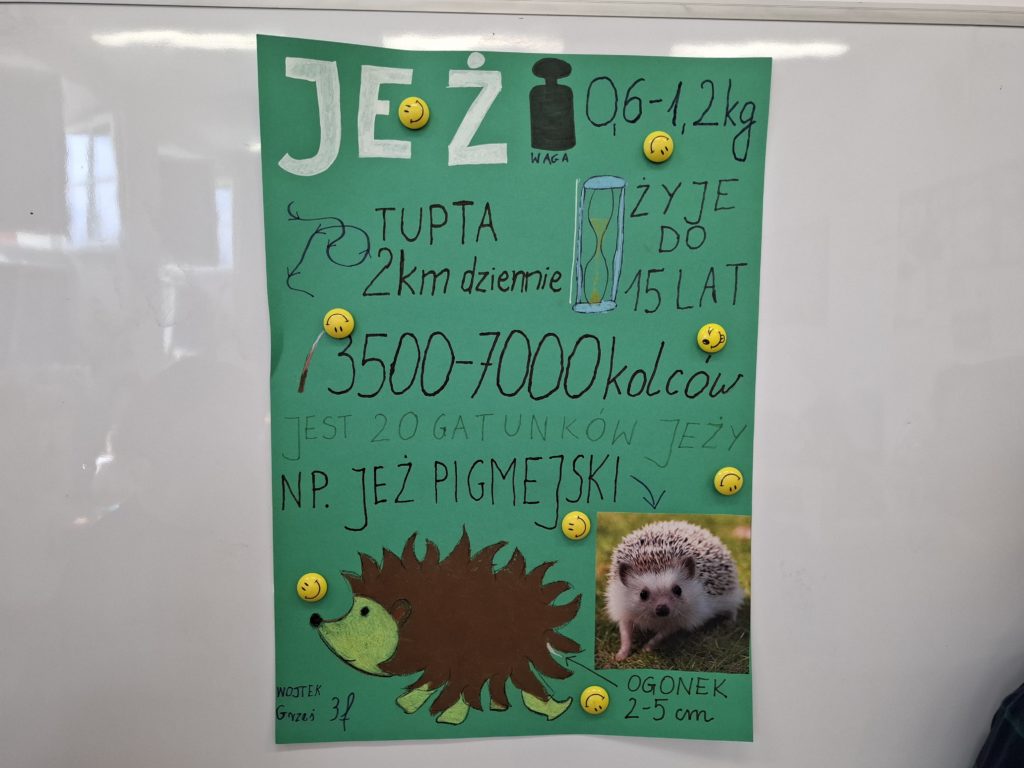 JEŻ
WAGA
0,6-1,2kg
TUPTA
2km dziennie
ŻYJE
DO
15 LAT
3500-7000 kolców
JEST 20 GATUNKÓW JEŻY
NP. JEŻ PIGMEJSKI
OGONEK
2-5 cm
WOJTEK
Grześ 3f